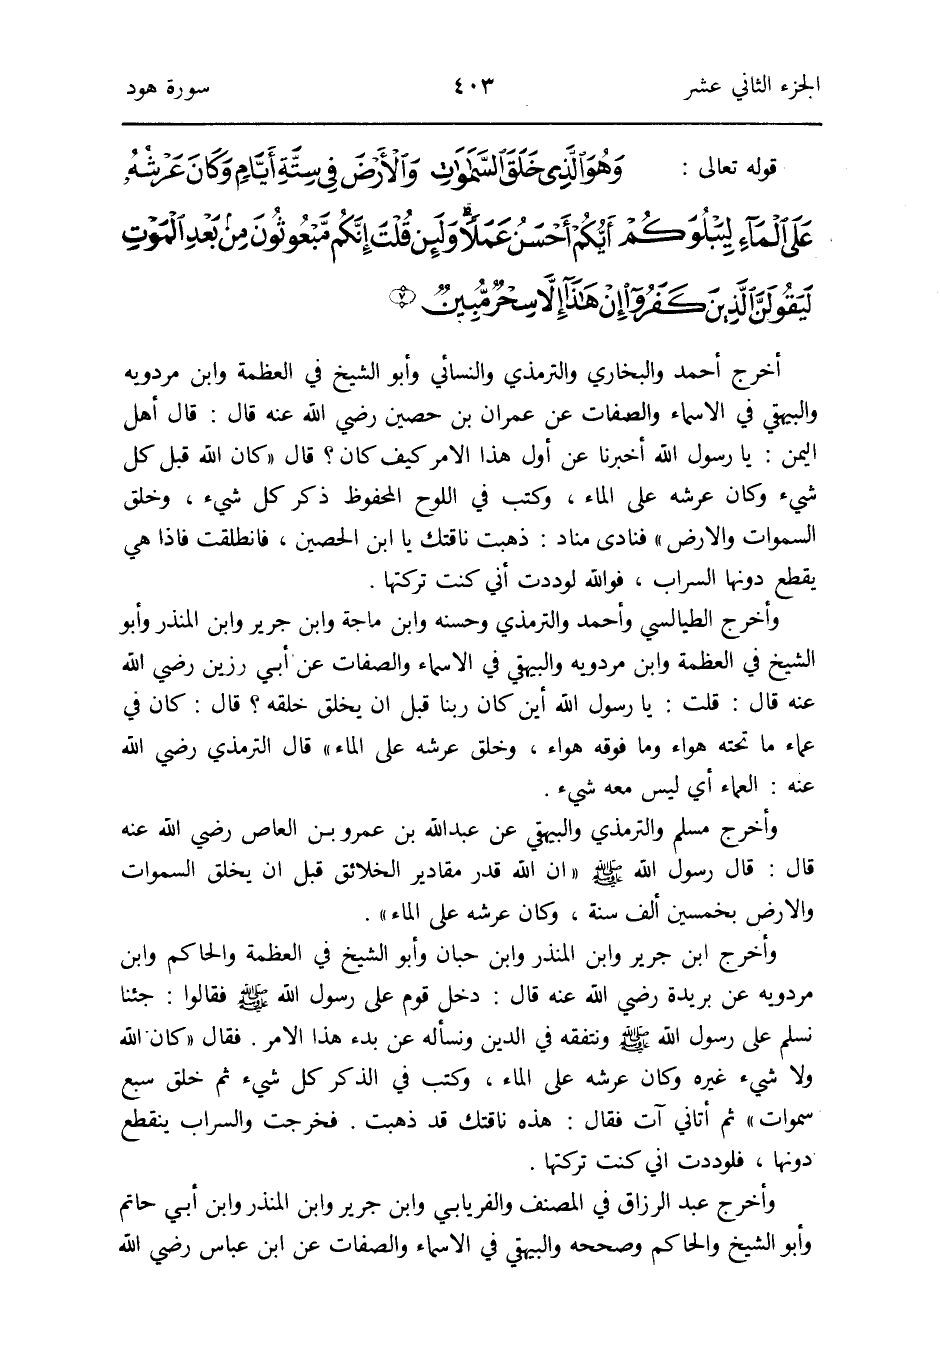 الجزء الثاني عشر ٤٠٣ سورة هود
قوله تعالى : وَهُوَ ٱلَّذِى خَلَقَ ٱلسَّمَٰوَٰتِ وَٱلْأَرْضَ فِى سِتَّةِ أَيَّامٍ وَكَانَ عَرْشُهُۥ
عَلَى ٱلْمَآءِ لِيَبْلُوَكُمْ أَيُّكُمْ أَحْسَنُ عَمَلًا ۗ وَلَئِن قُلْتَ إِنَّكُم مَّبْعُوثُونَ مِنۢ بَعْدِ ٱلْمَوْتِ
لَيَقُولَنَّ ٱلَّذِينَ كَفَرُوٓا۟ إِنْ هَٰذَآ إِلَّا سِحْرٌ مُّبِينٌ ٧
أخرج أحمد والبخاري والترمذي والنسائي وأبو الشيخ في العظمة وابن مردويه
والبيهقي في الاسماء والصفات عن عمران بن حصين رضي الله عنه قال : قال أهل
اليمن : يا رسول الله أخبرنا عن أول هذا الامر كيف كان ؟ قال «كان الله قبل كل
شيء وكان عرشه على الماء ، وكتب في اللوح المحفوظ ذكر كل شيء ، وخلق
السموات والارض» فنادى مناد : ذهبت ناقتك يا ابن الحصين ، فانطلقت فاذا هي
يقطع دونها السراب ، فوالله لوددت أني كنت تركتها .
وأخرج الطيالسي وأحمد والترمذي وحسنه وابن ماجة وابن جرير وابن المنذر وأبو
الشيخ في العظمة وابن مردويه والبيهقي في الاسماء والصفات عن أبي رزين رضي الله
عنه قال : قلت : يا رسول الله أين كان ربنا قبل ان يخلق خلقه ؟ قال : كان في
عماء ما تحته هواء وما فوقه هواء ، وخلق عرشه على الماء» قال الترمذي رضي الله
عنه : العماء أي ليس معه شيء .
وأخرج مسلم والترمذي والبيهقي عن عبدالله بن عمرو بن العاص رضي الله عنه
قال : قال رسول الله ﷺ «ان الله قدر مقادير الخلائق قبل ان يخلق السموات
والارض بخمسين ألف سنة ، وكان عرشه على الماء» .
وأخرج ابن جرير وابن المنذر وابن حبان وأبو الشيخ في العظمة والحاكم وابن
مردويه عن بريدة رضي الله عنه قال : دخل قوم على رسول الله ﷺ فقالوا : جئنا
نسلم على رسول الله ﷺ ونتفقه في الدين ونسأله عن بدء هذا الامر . فقال «كان الله
ولا شيء غيره وكان عرشه على الماء ، وكتب في الذكر كل شيء ثم خلق سبع
سموات» ثم أتاني آت فقال : هذه ناقتك قد ذهبت . فخرجت والسراب ينقطع
دونها ، فلوددت اني كنت تركتها .
وأخرج عبد الرزاق في المصنف والفريابي وابن جرير وابن المنذر وابن أبي حاتم
وأبو الشيخ والحاكم وصححه والبيهقي في الاسماء والصفات عن ابن عباس رضي الله